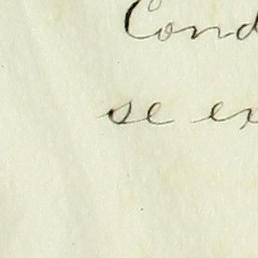 Cond
se ex